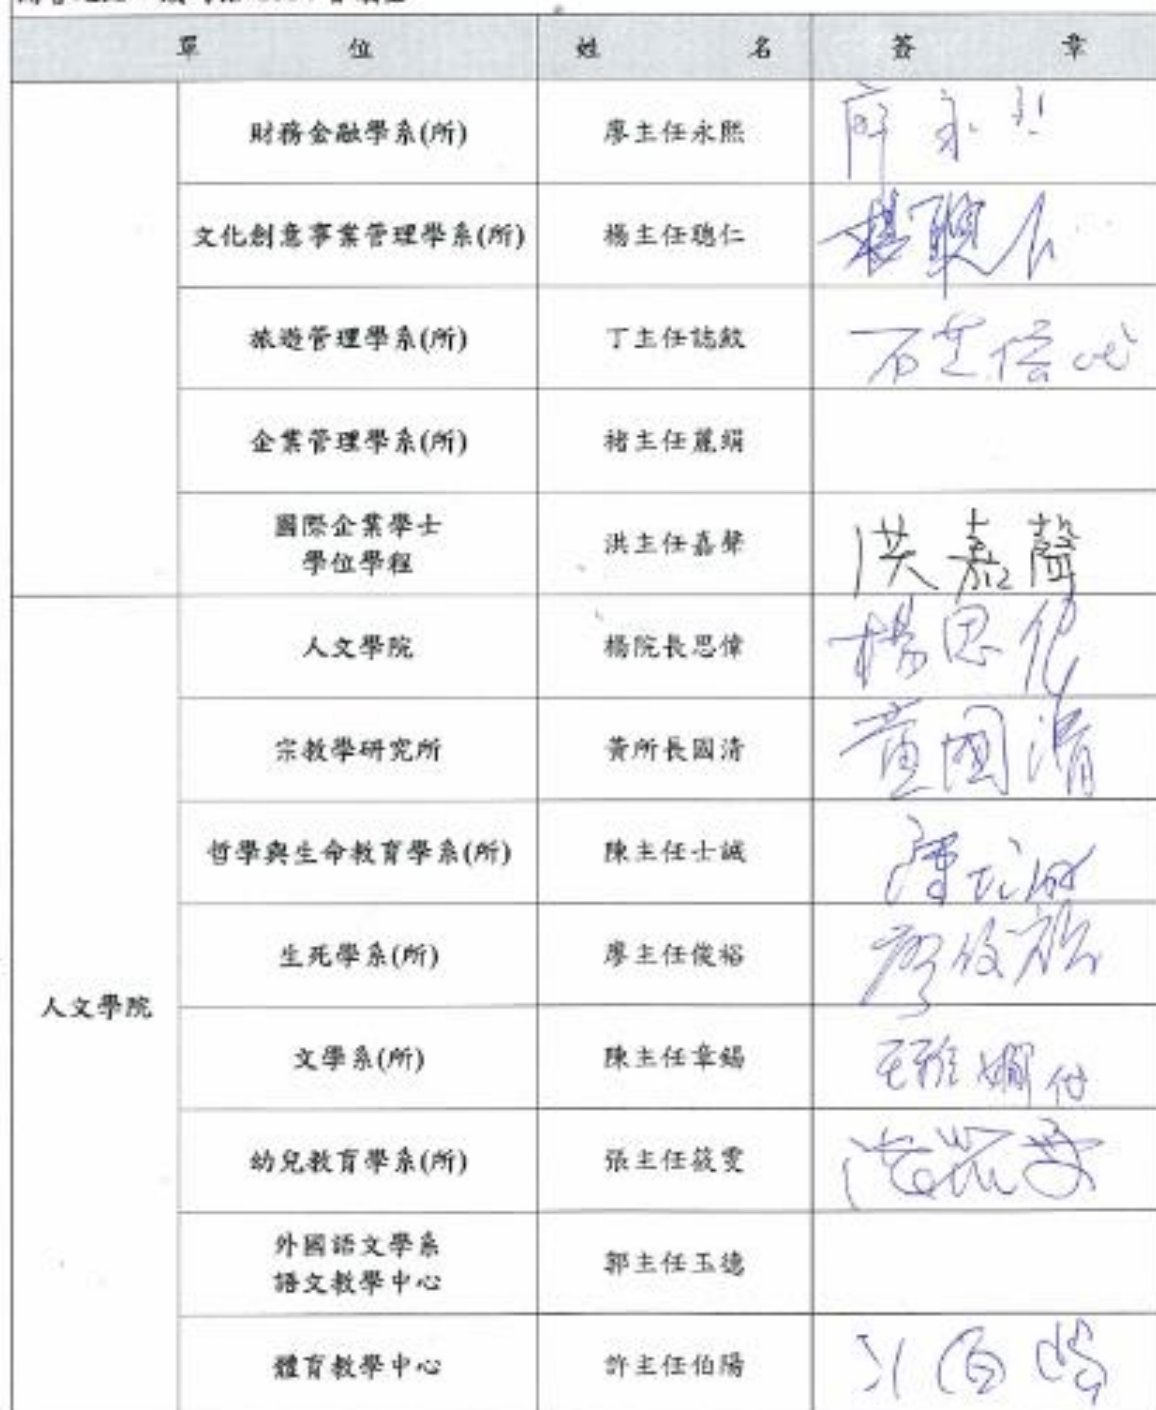 單 位 姓 名 簽 章
財務金融學系(所) 廖主任永熙
文化創意事業管理學系(所) 楊主任聰仁 楊聰仁
旅遊管理學系(所) 丁主任誌鮫
企業管理學系(所) 褚主任麗絹
國際企業學士
學位學程
洪主任嘉聲 洪嘉聲
人文學院
人文學院 楊院長思偉 楊思偉
宗教學研究所 黃所長國清 黃國清
哲學與生命教育學系(所) 陳主任士誠
生死學系(所) 廖主任俊裕 廖俊裕
文學系(所) 陳主任章錫
幼兒教育學系(所) 張主任筱雯
外國語文學系
語文教學中心
郭主任玉德
體育教學中心 許主任伯陽